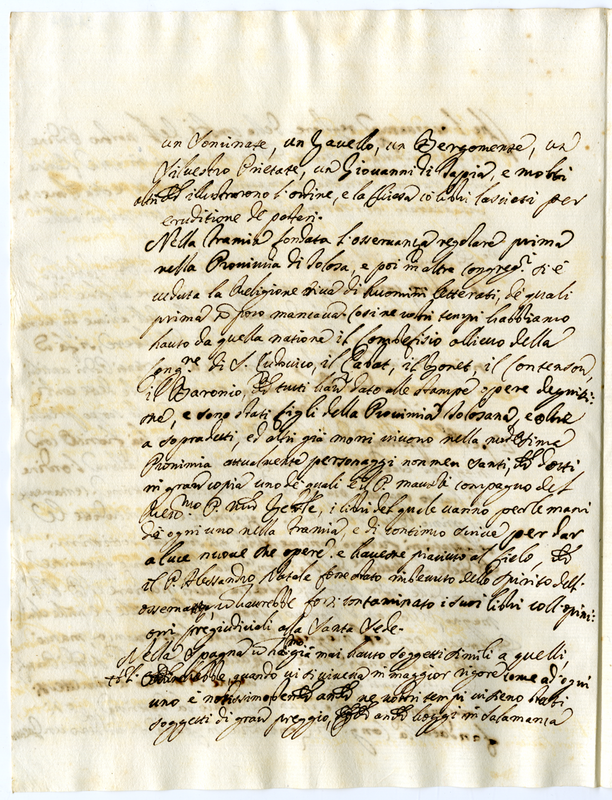 un Soncinate, un Javello, un Bergomense, un
Silvestro Prietate, un Giovanni di Taggia, e molti
altri illustrorono l'ordine, e la Chiesa co libri lasciati per
eruditione de posteri.
Nella Francia fondata l'osservanza regolare prima
nella Provincia di Tolosa, e poi in altra congreg.e si è
veduta la Religione viva di huomini letterati, de quali
prima mancava. Così ne nostri tempi habbiamo
hauto da quella natione il Combefisio allievo della
Cong.ne di S. Ludovico, il Gonet, il Contenson,
il Baronio, tutti han dato alle stampe opere degnissi-
me, e sono stati figli della Provincia Tolosana, e oltre
a sopradetti, ed altri già morti vivono nella medesima
Provincia attualmente personaggi non men santi, dotti
in gran copia uno de quali è il P. compagno del
Rev.mo P. N.ro Gen.le, i libri del quale vanno per le mani
di ogni uno nella Francia, e di continuo scrive per dar
a luce nuove opere. e havesse piaciuto al Cielo,
il P. Alessandro Natale fosse stato imbevuto dello spirito dell'
osservanza, havrebbe contaminato i suoi libri coll opini-
oni pregiudiciali alla Santa Sede.
Nella Spagna già mai hauto soggetti simili a quelli,
quando vi si viveva in maggior rigore come ad ogni
uno è notissimo ne nostri tempi vi sieno stati
soggetti di gran preggio, hoggi in Salamanca